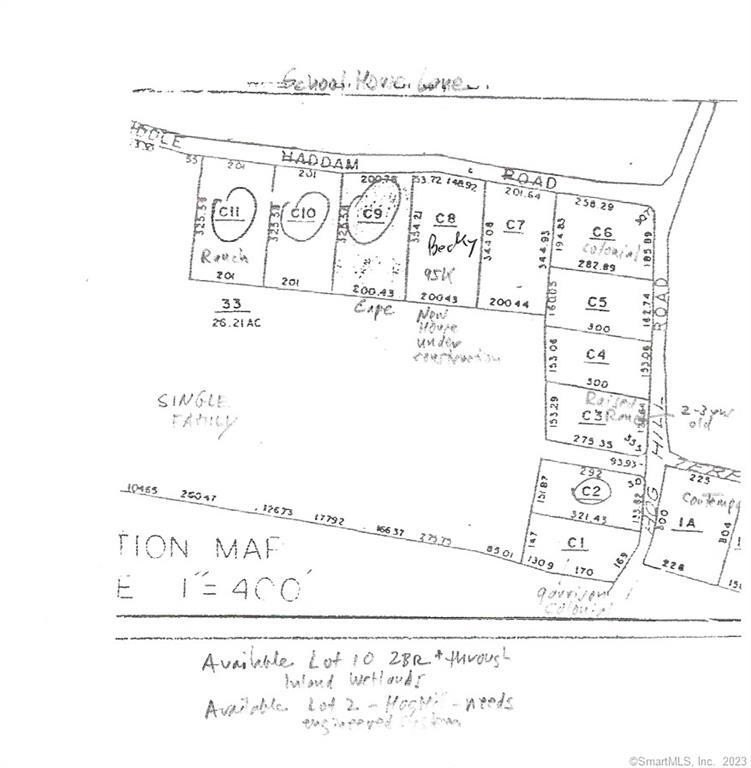 School House Lane
HADDAM
ROAD
330
55
201
201
200.78
53.72 148.92
201.64
258.29
307
325.58
C11
325.58
C10
325.58
C9
354.21
C8
344.08
C7
344.93
194.83
C6
185.89
Becky
colonial
Ranch
95K
282.89
201
201
200.43
200.43
200.44
160.05
C5
162.74
ROAD
33
26.21 AC
Cape
New
House
under
construction
300
153.06
C4
153.06
300
SINGLE
FAMILY
Raised
Ranch
153.29
C3
2-3 yrs
old
275.35
93.93
HOG HILL
292
151.87
C2
30
133.82
223
321.43
1A
300
804
228
10465
26047
12673
17792
16637
275.75
85.01
147
C1
169
130.9
170
TION MAP
E 1"= 400'
garrison
Colonial
Available Lot 10 2BR * through
Inland Wetlands
Available Lot 2 - Hog Hill - needs
engineered System
©SmartMLS, Inc. 2023